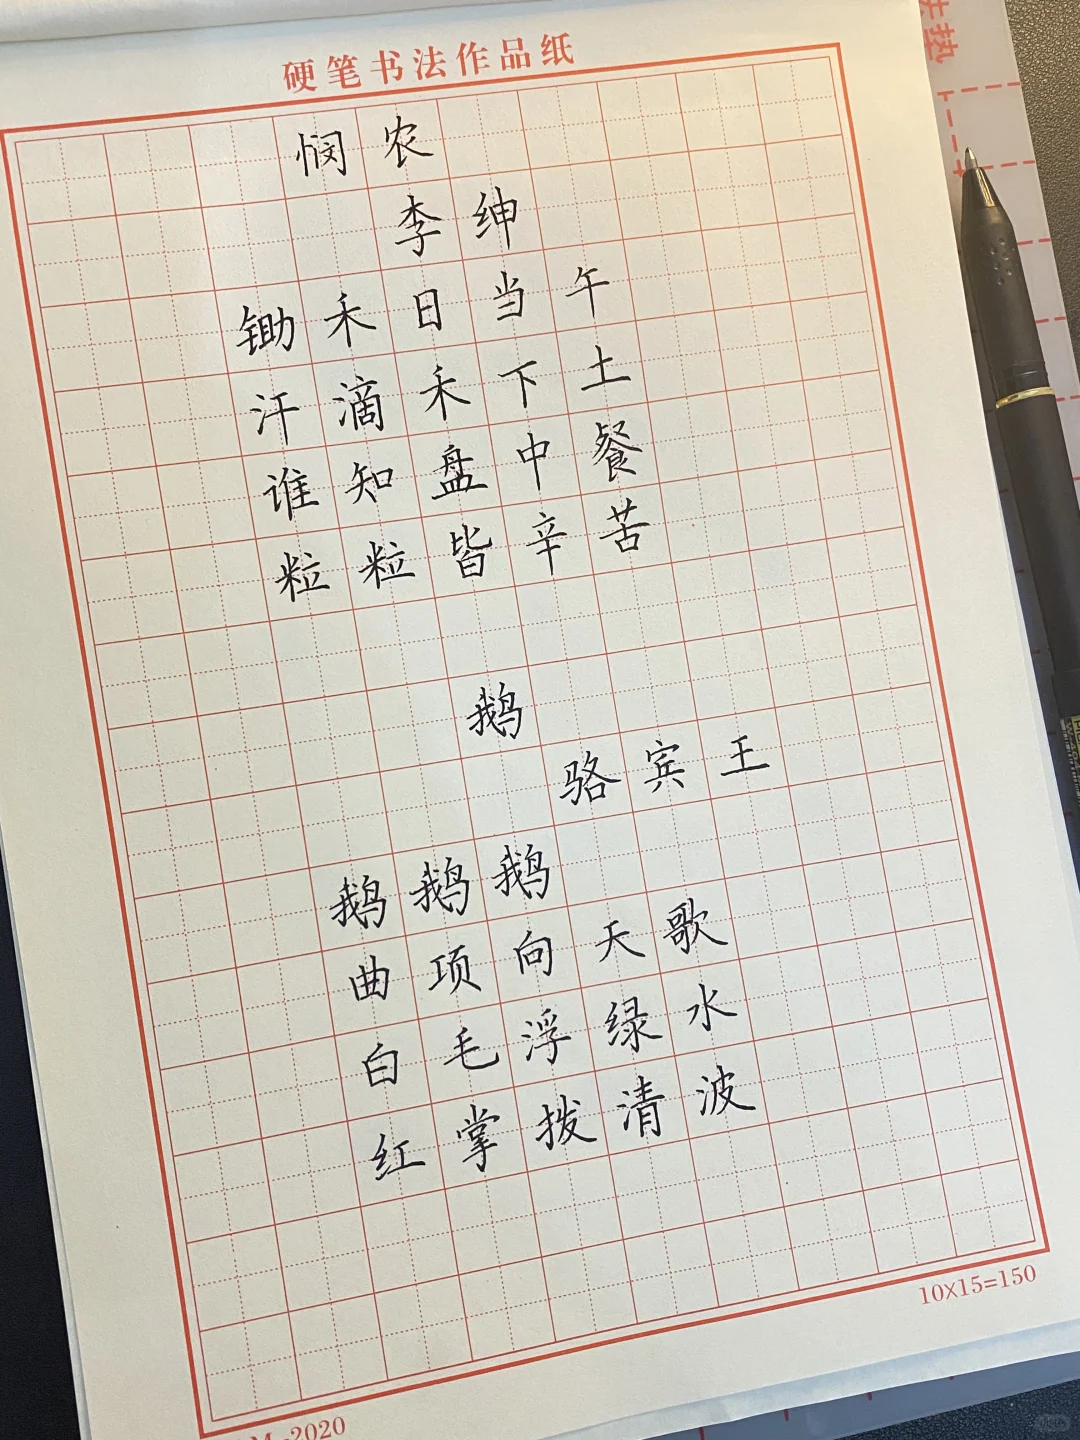 硬笔书法作品纸
悯农
李绅
锄禾日当午
汗滴禾下土
谁知盘中餐
粒粒皆辛苦
鹅
骆宾王
鹅鹅鹅
曲项向天歌
白毛浮绿水
红掌拨清波
10X15=150
2020